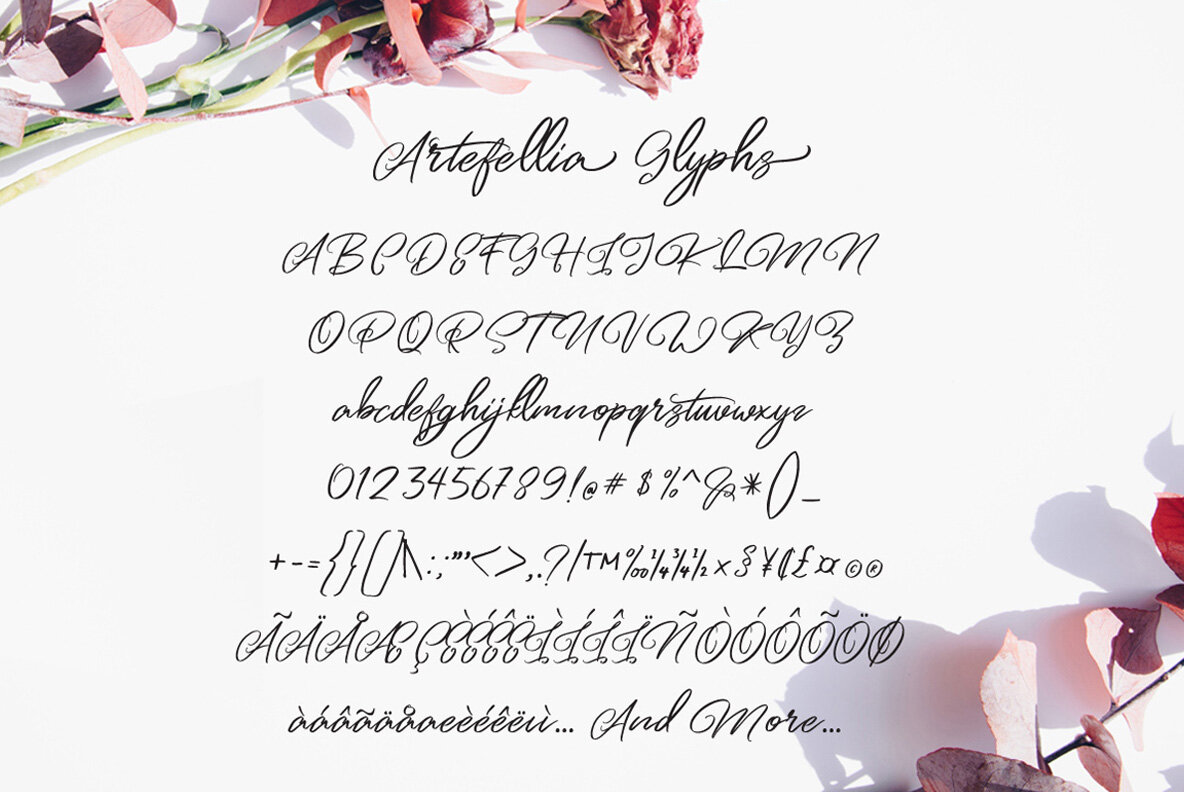 Artefellia Glyphs
ABCDEFGHIJKLMN
OPQRSTUVWXYZ
abcdefghijklmnopqrstuvwxyz
0123456789!@# $%^&*()_
+-={}[]|\:;"'<>,.?/™‰¼¾½×§¥¢£¤©®
ÃÄÅÆÇÈÉÊËÌÍÎÏÑÒÓÔÕÖØ
àáâãäåæèéêëìù... And More...